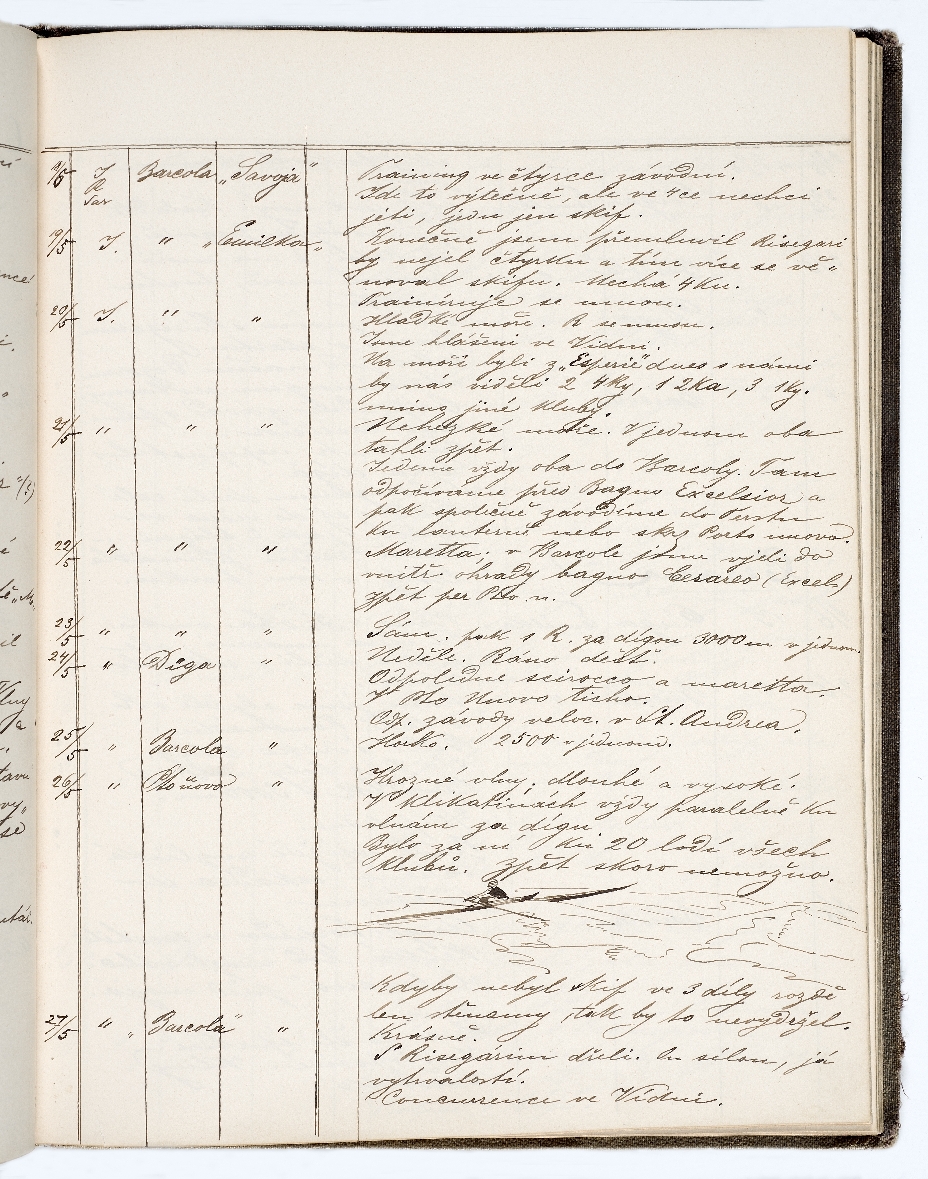 9/5 I. Barcola „Savoja" Training ve čtyrce závodní.
R
Jde to výtečně, ale ve 4ce nechci
jeti, jedu jen skif.
19/5 I. " „Emilka„ Konečně jsem přemluvil Risegari
by nejel čtyrku a tím více se vě-
noval skifu. Nechá 4ku.
Trainíruje se mnou.
20/5 I. " " Hladké moře. R se mnou.
Jsme hlášeni ve Vídni.
Na moři byli z „Esperie" dnes s námi
by nás viděli 2 4ky, 1 2ka, 3 1ky.
mimo jiné kluby.
21/5 " " " Nehezké moře. V jednom oba
tahli zpět.
Jedeme vždy oba do Barcoly. Tam
odpočíváme před Bagno Excelsior a
pak společně závodíme do Terstu
ku lanterně nebo skrz Porto nuovo.
22/5 " " " Maretta. v Barcole jsme vjeli do
vnitř. ohrady bagno Cesareo (Excels)
zpět per Pto. n.
23/5 " " " Sám. pak s R. za digou 3000 m v jednom.
24/5 " Diga " Neděle. Ráno déšť.
Odpoledne scirocco a maretta.
V Pto Nuovo ticho.
Odp. závody veloc. v St. Andrea.
25/5 " Barcola " Horko. 2500 v jednom.
26/5 " Pto nuovo " Hrozné vlny. dlouhé a vysoké.
V klikatinách vždy paralelně ku
vlnám za digu.
Bylo za ní ku 20 lodí všech
klubů. Zpět skoro nemožno.
Kdyby nebyl skif ve 3 díly rozdě
len stěnamy, tak by to nevydržel.
27/5 " „Barcola" " Krásně.
S Risegárim dřeli. On silou, já
vytrvalostí.
Concurrence ve Vídni.